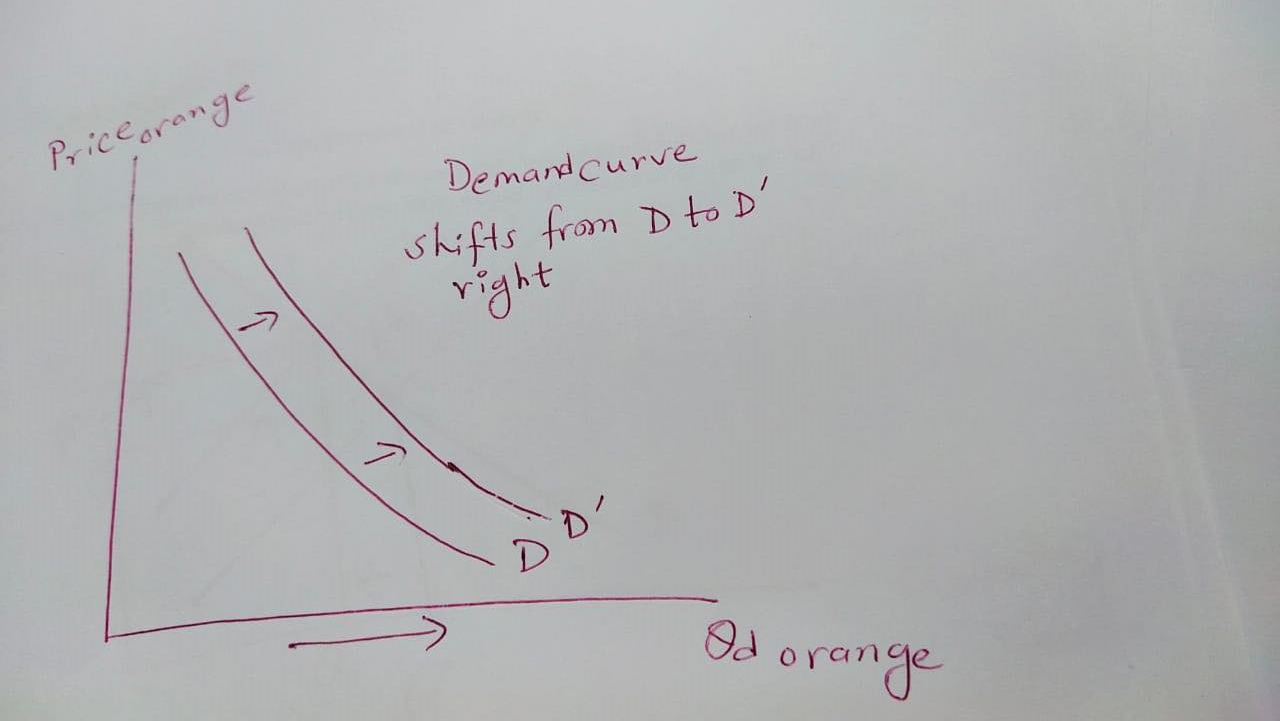 Price orange
Demand curve
shifts from D to D'
right
D'
D
Qd orange